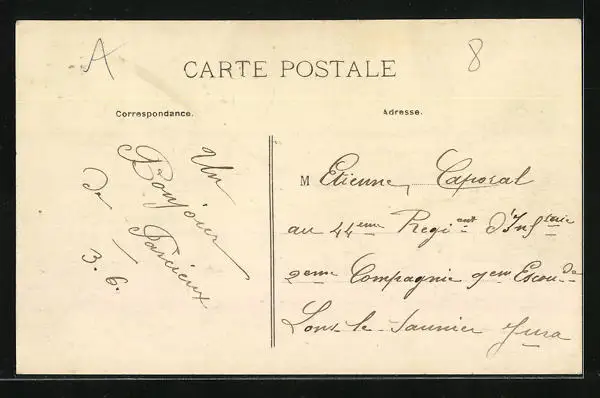 A
8
CARTE POSTALE
Correspondance.
Adresse.
Un
Bonjour
de Parcieux
3.6.
M Etienne, Caporal
au 44eme Regient d'Infterie
2eme Compagnie 9em Escoude
Lons-le-Saunier Jura